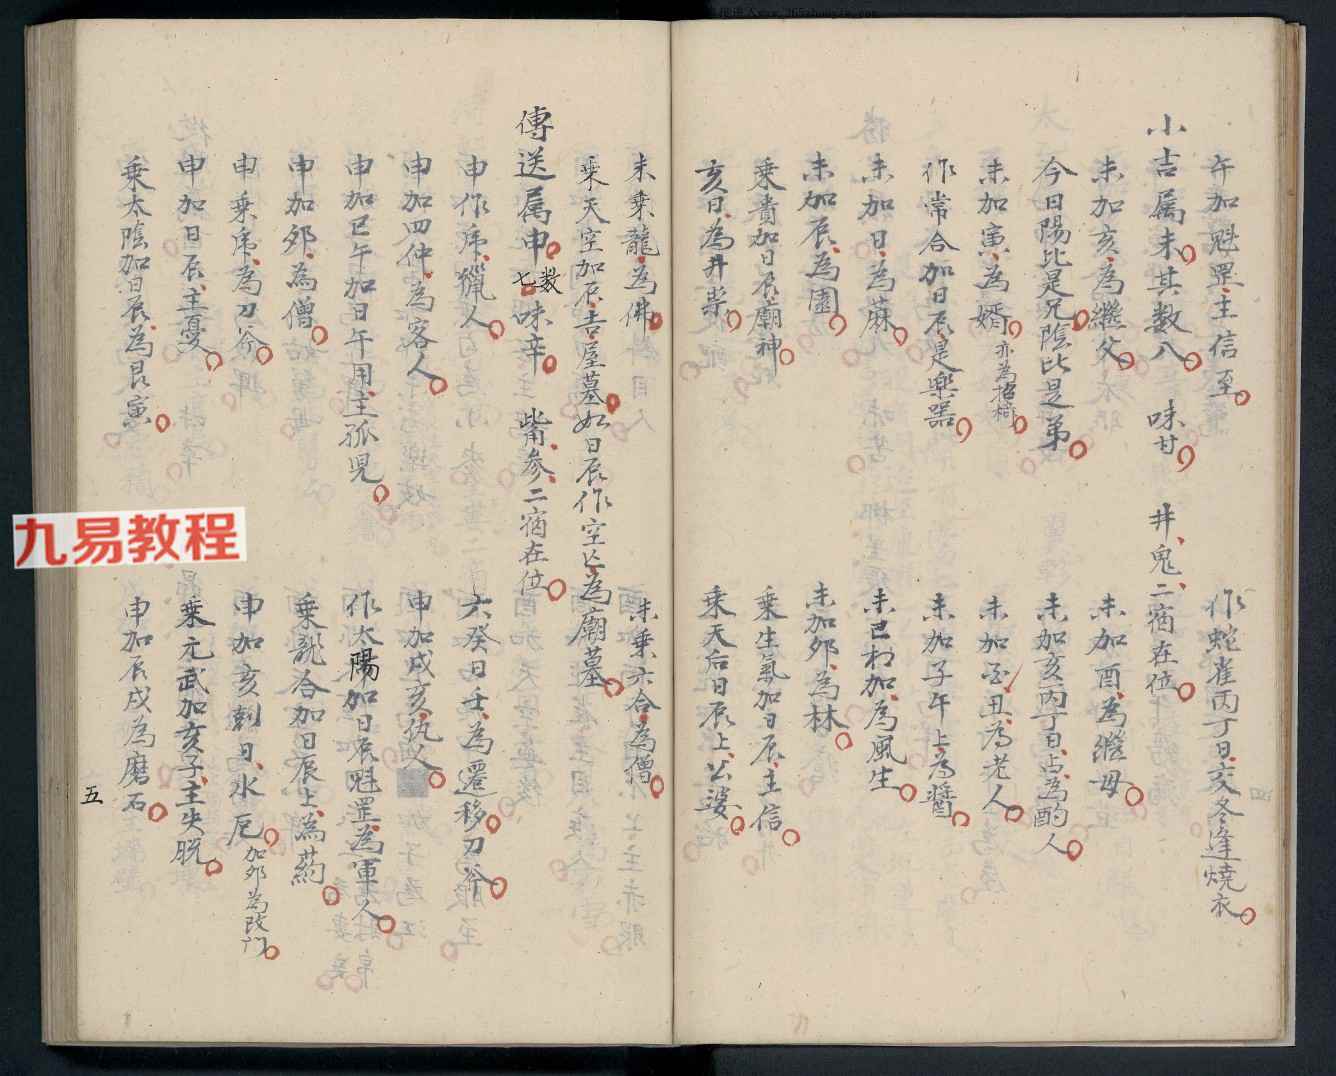 午加魁罡主信至
作蛇雀丙丁日交冬逢燒衣
小吉属未其数八 味甘 井鬼二宿在位
未加亥為繼父
未加酉為繼母
今日陽比是兄陰比是弟
未加亥丙丁日占為酌人
未加寅為婿 亦為招婿
未加丑為老人
作常合加日辰是樂器
未加子午上為醬
未加日為蔴
未巳相加為風生
未加辰為園
未加卯為林
乗貴加日辰廟神
乗生氣加日辰主信
亥日為井祟
乗天后日辰上公婆
未乗龍為佛
未乗六合為僧
乗天空加辰吉屋墓如日辰作空亡為廟墓
傳送属申 数七 味辛 觜参二宿在位
申作乕獵人
六癸日壬為遷移刀斧
申加四仲為客人
申加戌亥仇人
申加巳午加日午用主孤児
作太陽加日辰魁罡為軍人
申加夘為僧
乗龍合加日辰上為药
申乗乕為刀斧
申加亥剋日水厄 加夘為改门
申加日辰主憂
乗元武加亥子主失脱
乗太陰加日辰為
申加辰戌為磨石
五
九易教程